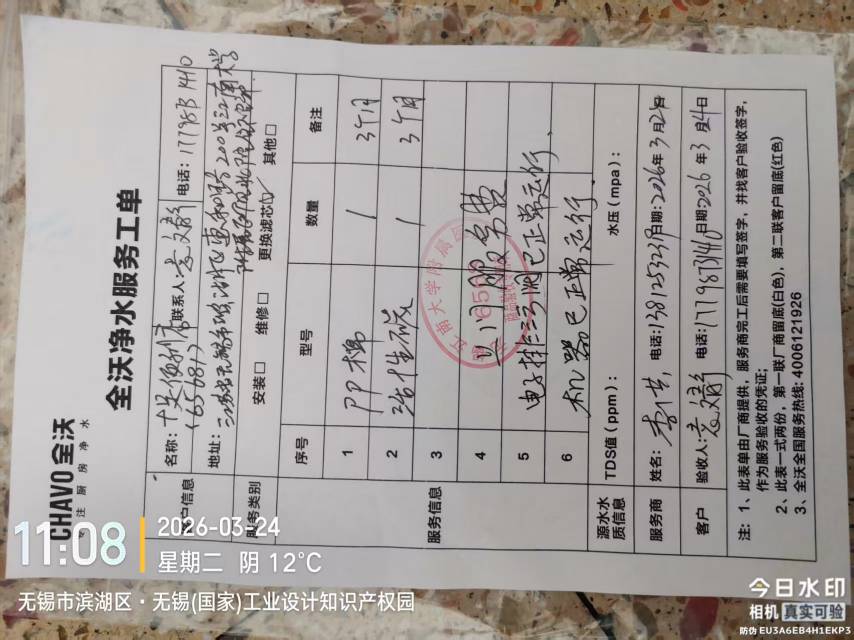 CHAVO 全沃
专注厨房净水
全沃净水服务工单
客户信息
名称:十足便利店
(65681)
联系人:袁文静
电话:17798731410
地址:江苏省无锡市滨湖区蠡和路200号江南大学
服务类别
安装□ 维修□ 更换滤芯☑ 其他□
服务信息
序号 型号 数量 备注
1 PP棉 1 3个月
2 活性碳 1 3个月
3
4 上门服务费
5 电排三通已正常运行、
6 机器已正常运行、
江南大学附属
源水水质信息
TDS值(ppm): 水压(mpa):
服务商 姓名: 电话:13812532319 日期:2026年3月24日
客户 验收人:袁文静 电话:17798731410 日期2026年3月24日
注: 1、此表单由厂商提供,服务商完工后需要填写签字,并找客户验收签字,
作为服务验收的凭证;
2、此表一式两份,第一联厂商留底(白色),第二联客户留底(红色)
3、全沃全国服务热线:4006121926
11:08
2026-03-24
星期二 阴 12℃
无锡市滨湖区·无锡(国家)工业设计知识产权园
今日水印
相机 真实可验
防伪 EU3A6EB4H1EKP3